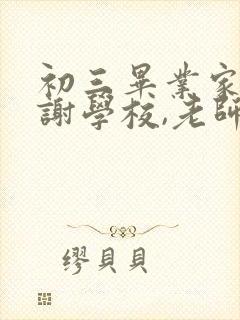 初三畢業家
謝學校,老師
繆貝貝